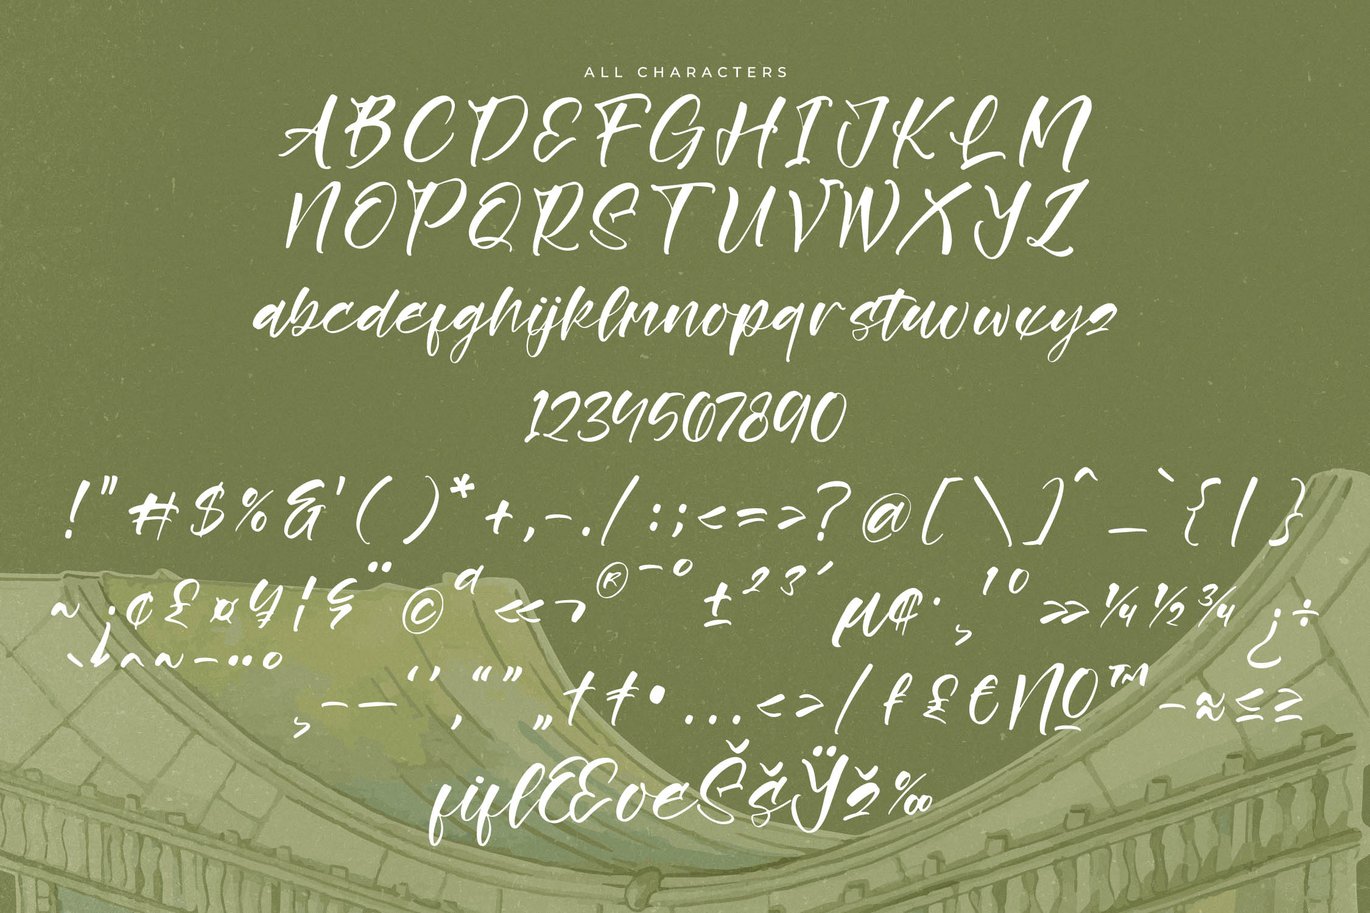 ALL CHARACTERS
ABCDEFGHIJKLM
NOPQRSTUVWXYZ
abcdefghijklmnopqrstuvwxyz
1234567890
!"#$%&'()*+,-./:;<=>?@[\]^_`{|}
~¡¢£¤¥¦§¨©ª«¬®¯°±²³´µ¶·¸¹º»¼½¾¿÷
ˋıˆ˜ˉ¨˚
¸–—‘’‚“”„†‡•...‹›⁄ƒ£€№™−≈≤≥
fifjflŒœŠšŸž‰